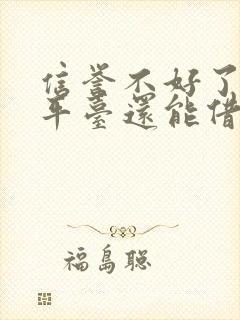 信誉不好了
平臺還能借
福島聡